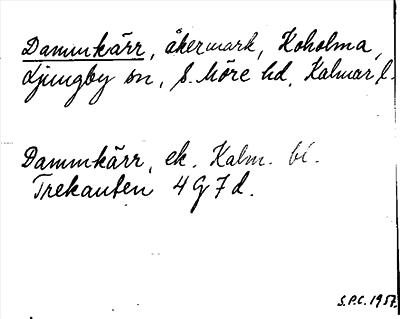 Dammkärr, åkermark, Koholma,
Ljungby sn, S. Möre hd, Kalmar l.
Dammkärr, ek. Kalm. bl.
Trekanten 4 G 7 d.
S.P.C. 1957.